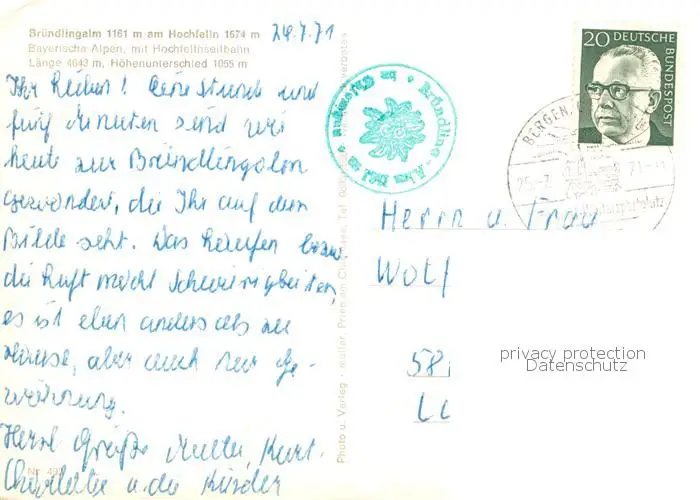 Bründlingalm 1161 m am Hochfelln 1674 m
Bayerische Alpen, mit Hochfellnseilbahn
Länge 4043 m, Höhenunterschied 1055 m
24.7.71
Ihr Lieben! Eine Stunde und
fünf Minuten sind wir
heute zur Bründlingalm
gewandert, die Ihr auf dem
Bilde seht. Das Laufen bzw.
die Luft macht Schwierigkeiten,
es ist eben anders als zu
Hause, aber auch nur Ge-
wöhnung.
Herzl. Grüße Mutti, Kurt,
Charlotte u. die Kinder
Photo u. Verlag
Bründling-Alm
20 DEUTSCHE
BUNDESPOST
BERGEN
Herrn u. Frau
Wolf
58
privacy protection
Datenschutz